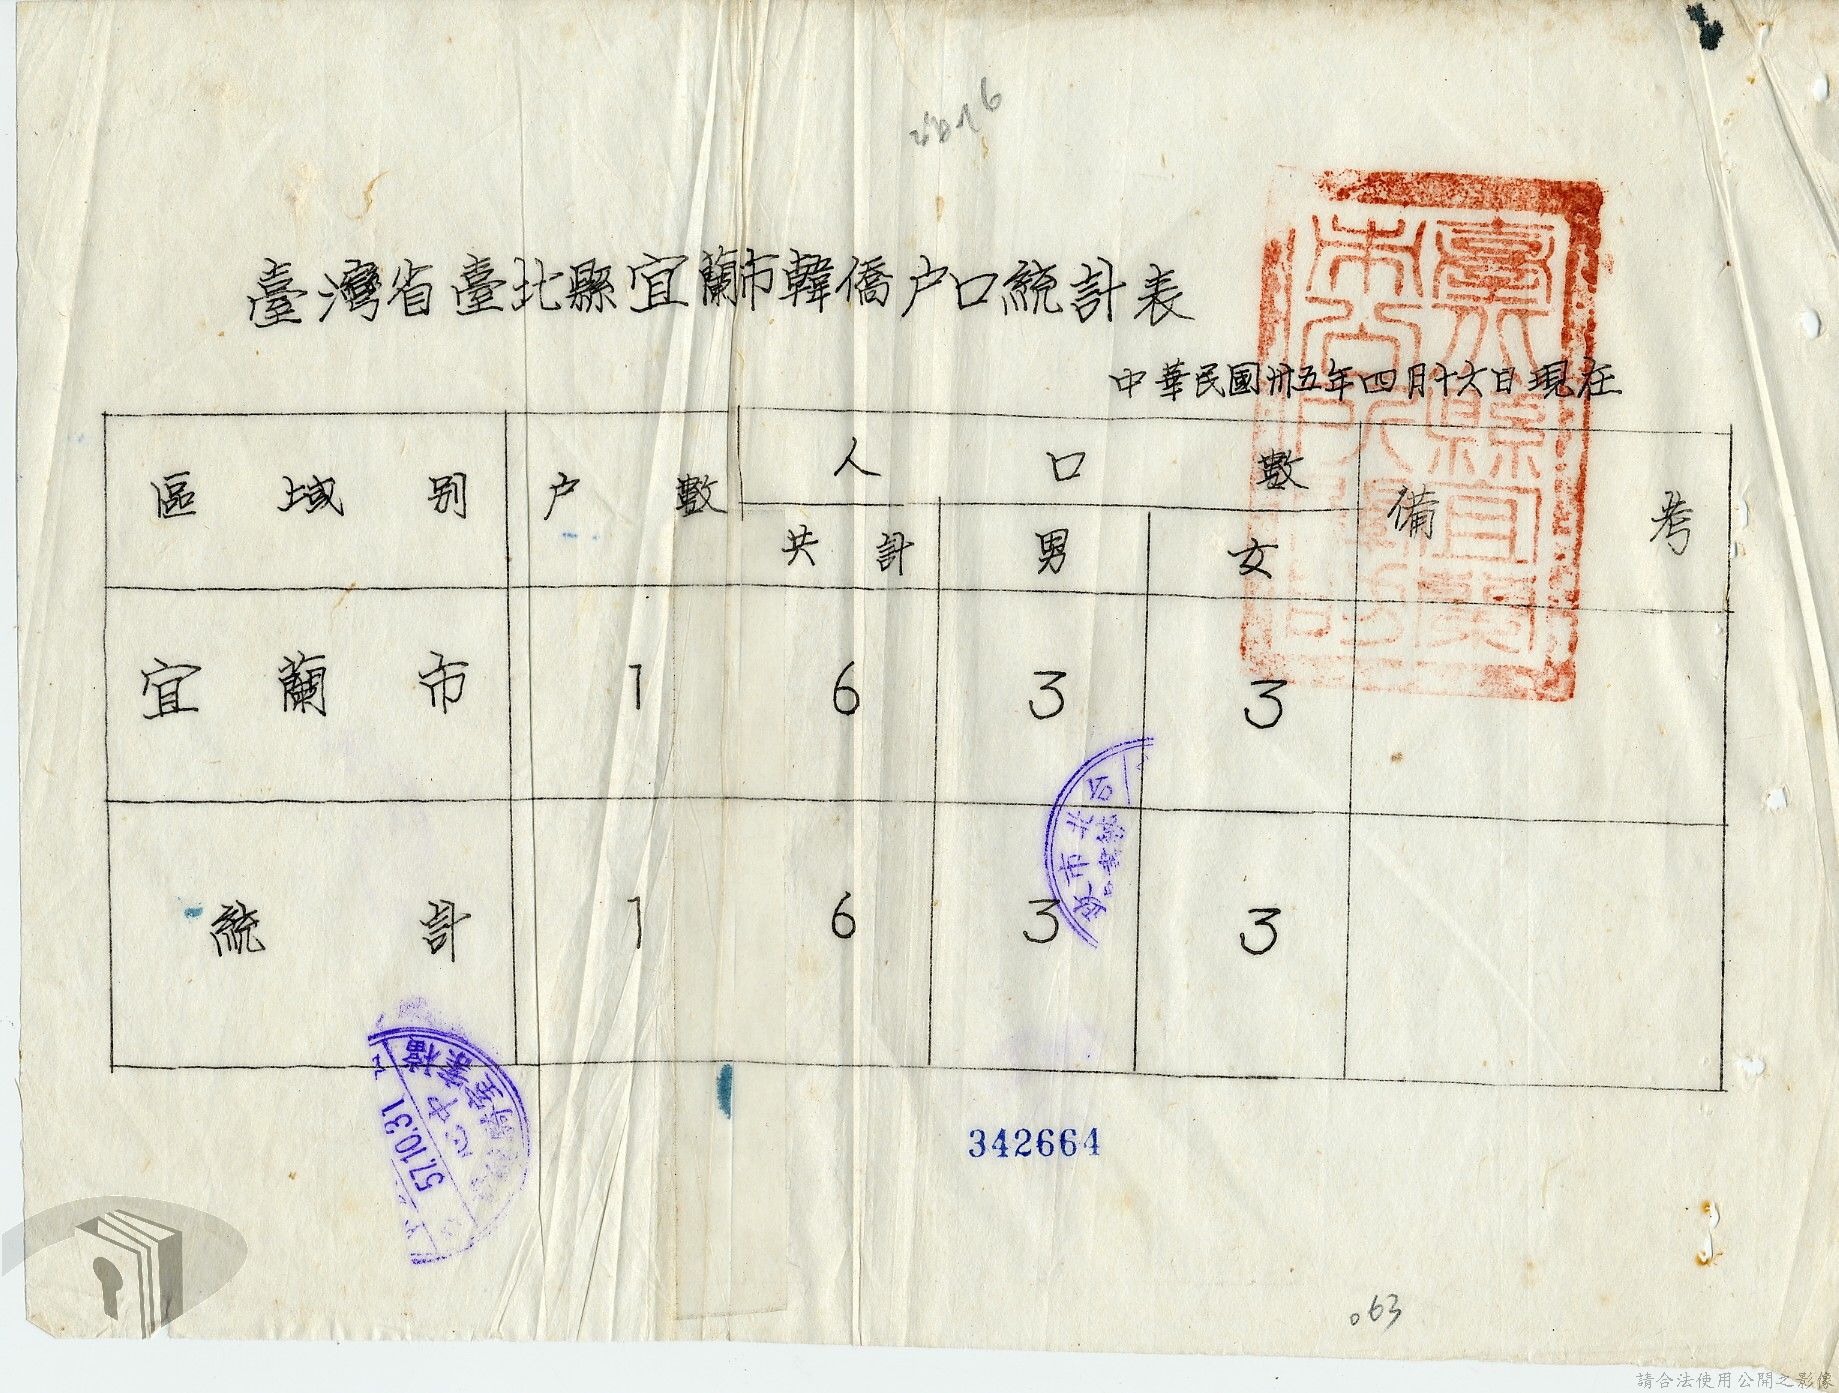 臺灣省臺北縣宜蘭市韓僑户口統計表
中華民國卅五年四月十六日現在
區域別 户數 人口數 備考
共計 男 女
宜蘭市 1 6 3 3
統計 1 6 3 3
342664
57.10.31
063
請合法使用公開之影像